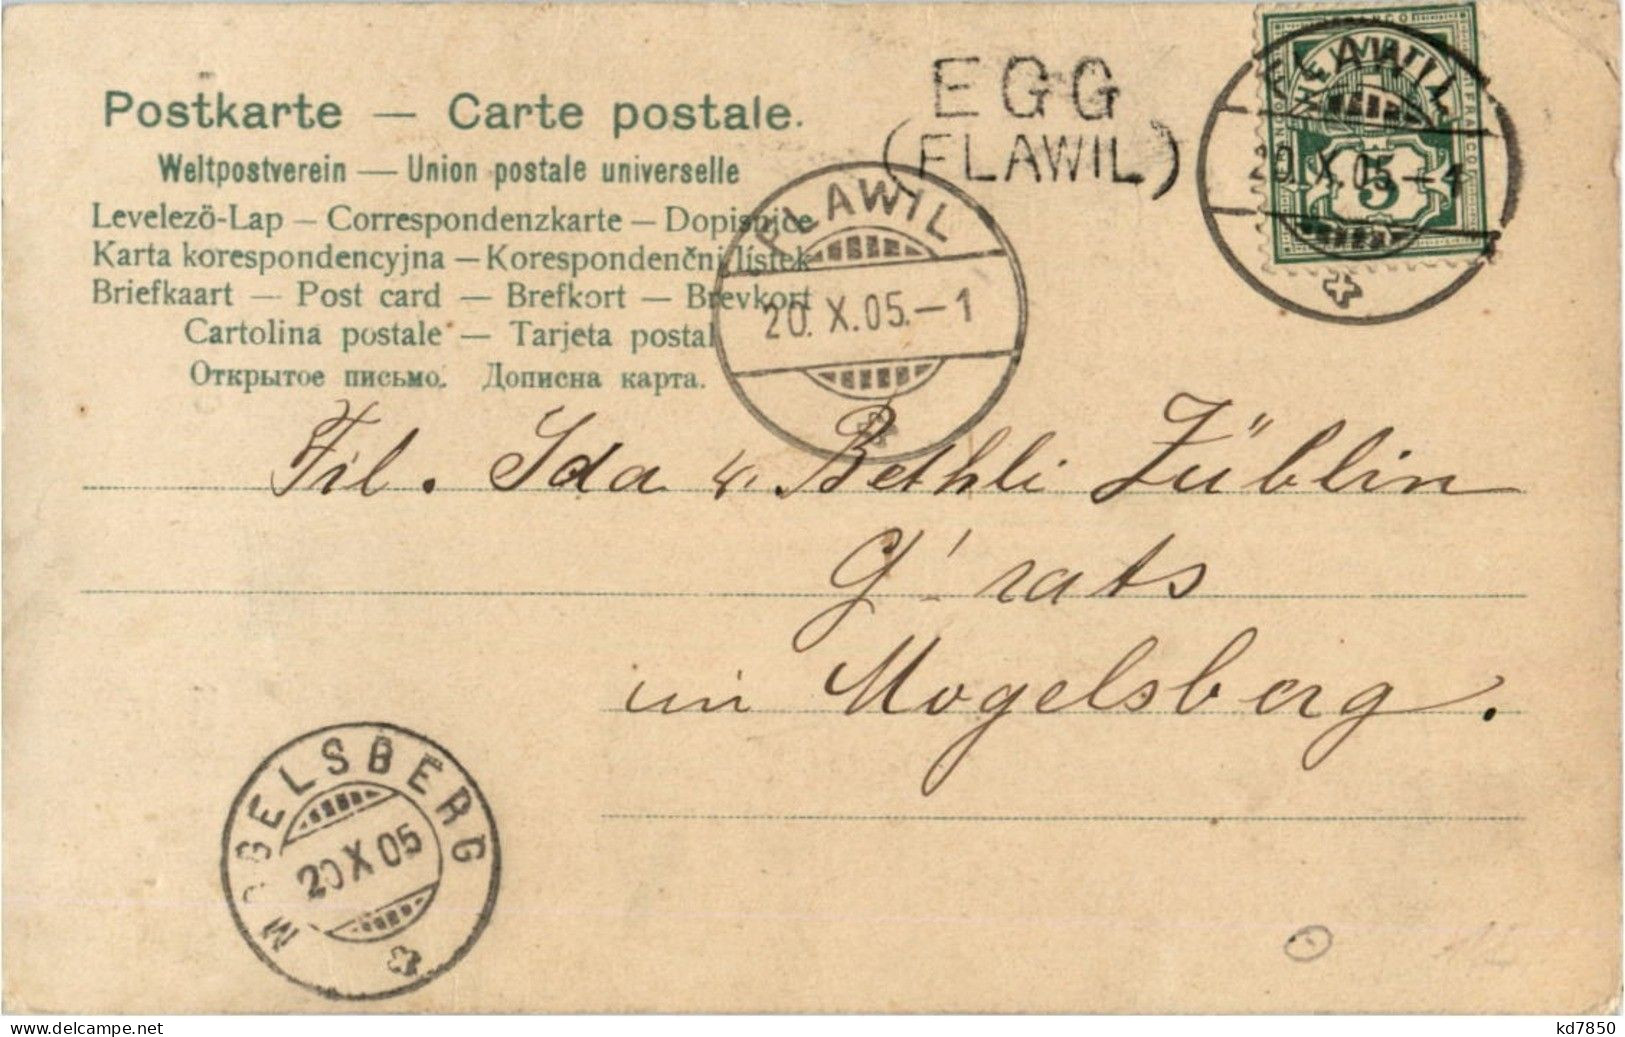 Postkarte — Carte postale.
Weltpostverein — Union postale universelle
Levelezö-Lap — Correspondenzkarte — Dopisnice
Karta korespondencyjna — Korespondenčni lístek
Briefkaart — Post card — Brefkort — Brevkort
Cartolina postale — Tarjeta postal
Открытое письмо. Дописна карта.
EGG
(FLAWIL)
FLAWIL
20. X. 05.—1
FRANCO
HELVETIA
5
FLAWIL
20. X. 05—1
Frl. Ida u. Bethli Züblin
G'rats
in Mogelsberg.
MOGELSBERG
20 X 05
kd7850